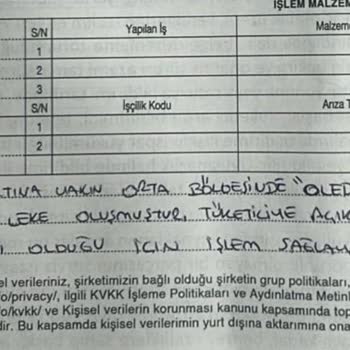 İŞLEM MALZEM
S/N Yapılan İş Malzeme
1
2
3
S/N İşçilik Kodu Arıza T
1
2
LTINA YAKIN ORTA BÖLGESİNDE "OLED
LEKE OLUŞMUŞTUR, TÜKETİCİYE AÇIK
OLDUĞU İÇİN İŞLEM SAĞLAM
el verileriniz, şirketimizin bağlı olduğu şirketin grup politikaları,
o/privacy/, ilgili KVKK İşleme Politikaları ve Aydınlatma Metinl
o/kvkk/ ve Kişisel Verilerin korunması kanunu kapsamında top
dir. Bu kapsamda kişisel verilerimin yurt dışına aktarımına ona